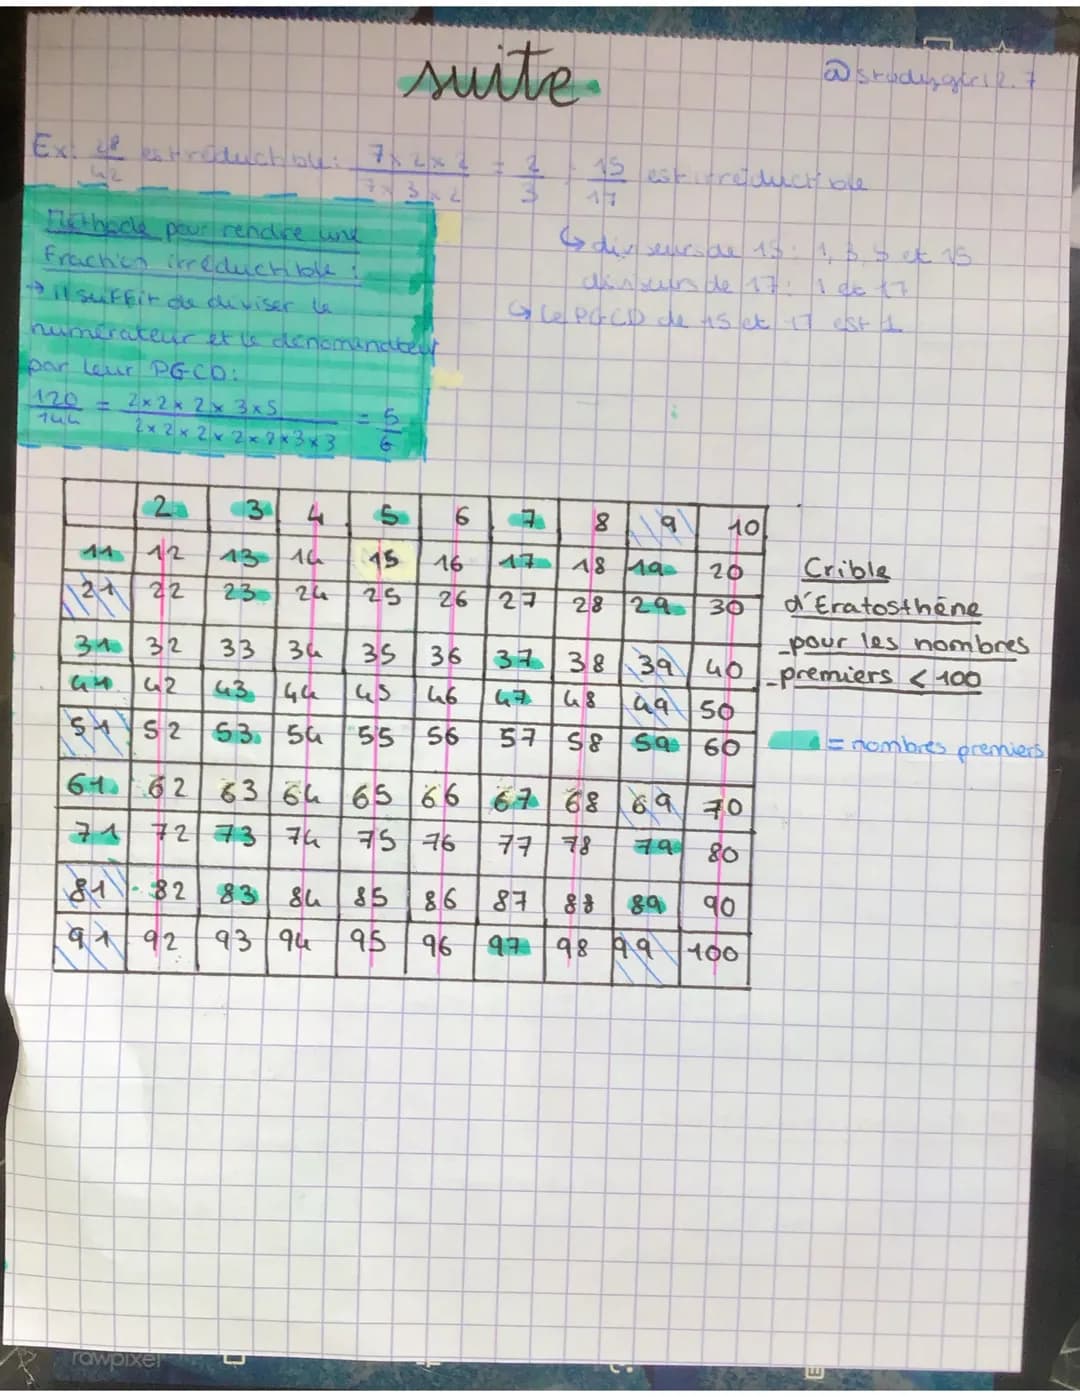 suite
@studygirl2.7
Ex: 28/42 est réductible: 7×2×2/7×3×2 = 2/3 ; 15/17 est irréductible
Méthode pour rendre une
fraction irréductible :
→ il suffit de diviser le
numérateur et le dénominateur
par leur PGCD:
120/144 = 2×2×2×3×5/2×2×2×2×3×3 = 5/6
↳ diviseurs de 15: 1, 3, 5 et 15
diviseurs de 17: 1 et 17
↳ le PGCD de 15 et 17 est 1
2 3 4 5 6 7 8 9 10
11 12 13 14 15 16 17 18 19 20
21 22 23 24 25 26 27 28 29 30
31 32 33 34 35 36 37 38 39 40
41 42 43 44 45 46 47 48 49 50
51 52 53 54 55 56 57 58 59 60
61 62 63 64 65 66 67 68 69 70
71 72 73 74 75 76 77 78 79 80
81 82 83 84 85 86 87 88 89 90
91 92 93 94 95 96 97 98 99 100
Crible
d'Eratosthène
pour les nombres
premiers < 100
= nombres premiers
rawpixel